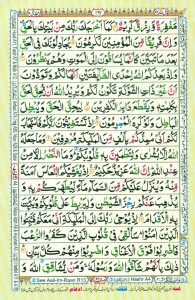 مَغْفِرَةٌ وَّرِزْقٌ كَرِيْمٌ كَمَآ اَخْرَجَكَ رَبُّكَ مِنْۢ بَيْتِكَ بِالْحَقِّ
وَاِنَّ فَرِيْقًا مِّنَ الْمُؤْمِنِيْنَ لَكٰرِهُوْنَ يُجَادِلُوْنَكَ فِي الْحَقِّ
بَعْدَ مَا تَبَيَّنَ كَاَنَّمَا يُسَاقُوْنَ اِلَى الْمَوْتِ وَهُمْ يَنْظُرُوْنَ
وَاِذْ يَعِدُكُمُ اللّٰهُ اِحْدَى الطَّآئِفَتَيْنِ اَنَّهَا لَكُمْ وَتَوَدُّوْنَ
اَنَّ غَيْرَ ذَاتِ الشَّوْكَةِ تَكُوْنُ لَكُمْ وَيُرِيْدُ اللّٰهُ اَنْ يُّحِقَّ
الْحَقَّ بِكَلِمٰتِهٖ وَيَقْطَعَ دَابِرَ الْكٰفِرِيْنَ لِيُحِقَّ الْحَقَّ وَيُبْطِلَ
الْبَاطِلَ وَلَوْ كَرِهَ الْمُجْرِمُوْنَ اِذْ تَسْتَغِيْثُوْنَ رَبَّكُمْ فَاسْتَجَابَ
لَكُمْ اَنِّيْ مُمِدُّكُمْ بِاَلْفٍ مِّنَ الْمَلٰٓئِكَةِ مُرْدِفِيْنَ وَمَا جَعَلَهُ
اللّٰهُ اِلَّا بُشْرٰى وَلِتَطْمَئِنَّ بِهٖ قُلُوْبُكُمْ وَمَا النَّصْرُ اِلَّا مِنْ
عِنْدِ اللّٰهِ اِنَّ اللّٰهَ عَزِيْزٌ حَكِيْمٌ اِذْ يُغَشِّيْكُمُ النُّعَاسَ اَمَنَةً
مِّنْهُ وَيُنَزِّلُ عَلَيْكُمْ مِّنَ السَّمَآءِ مَآءً لِّيُطَهِّرَكُمْ بِهٖ وَيُذْهِبَ
عَنْكُمْ رِجْزَ الشَّيْطٰنِ وَلِيَرْبِطَ عَلٰى قُلُوْبِكُمْ وَيُثَبِّتَ بِهِ
الْاَقْدَامَ اِذْ يُوْحِيْ رَبُّكَ اِلَى الْمَلٰٓئِكَةِ اَنِّيْ مَعَكُمْ فَثَبِّتُوا
الَّذِيْنَ اٰمَنُوْا سَاُلْقِيْ فِيْ قُلُوْبِ الَّذِيْنَ كَفَرُوا الرُّعْبَ
فَاضْرِبُوْا فَوْقَ الْاَعْنَاقِ وَاضْرِبُوْا مِنْهُمْ كُلَّ بَنَانٍ
ذٰلِكَ بِاَنَّهُمْ شَآقُّوا اللّٰهَ وَرَسُوْلَهٗ وَمَنْ يُّشَاقِقِ اللّٰهَ وَ